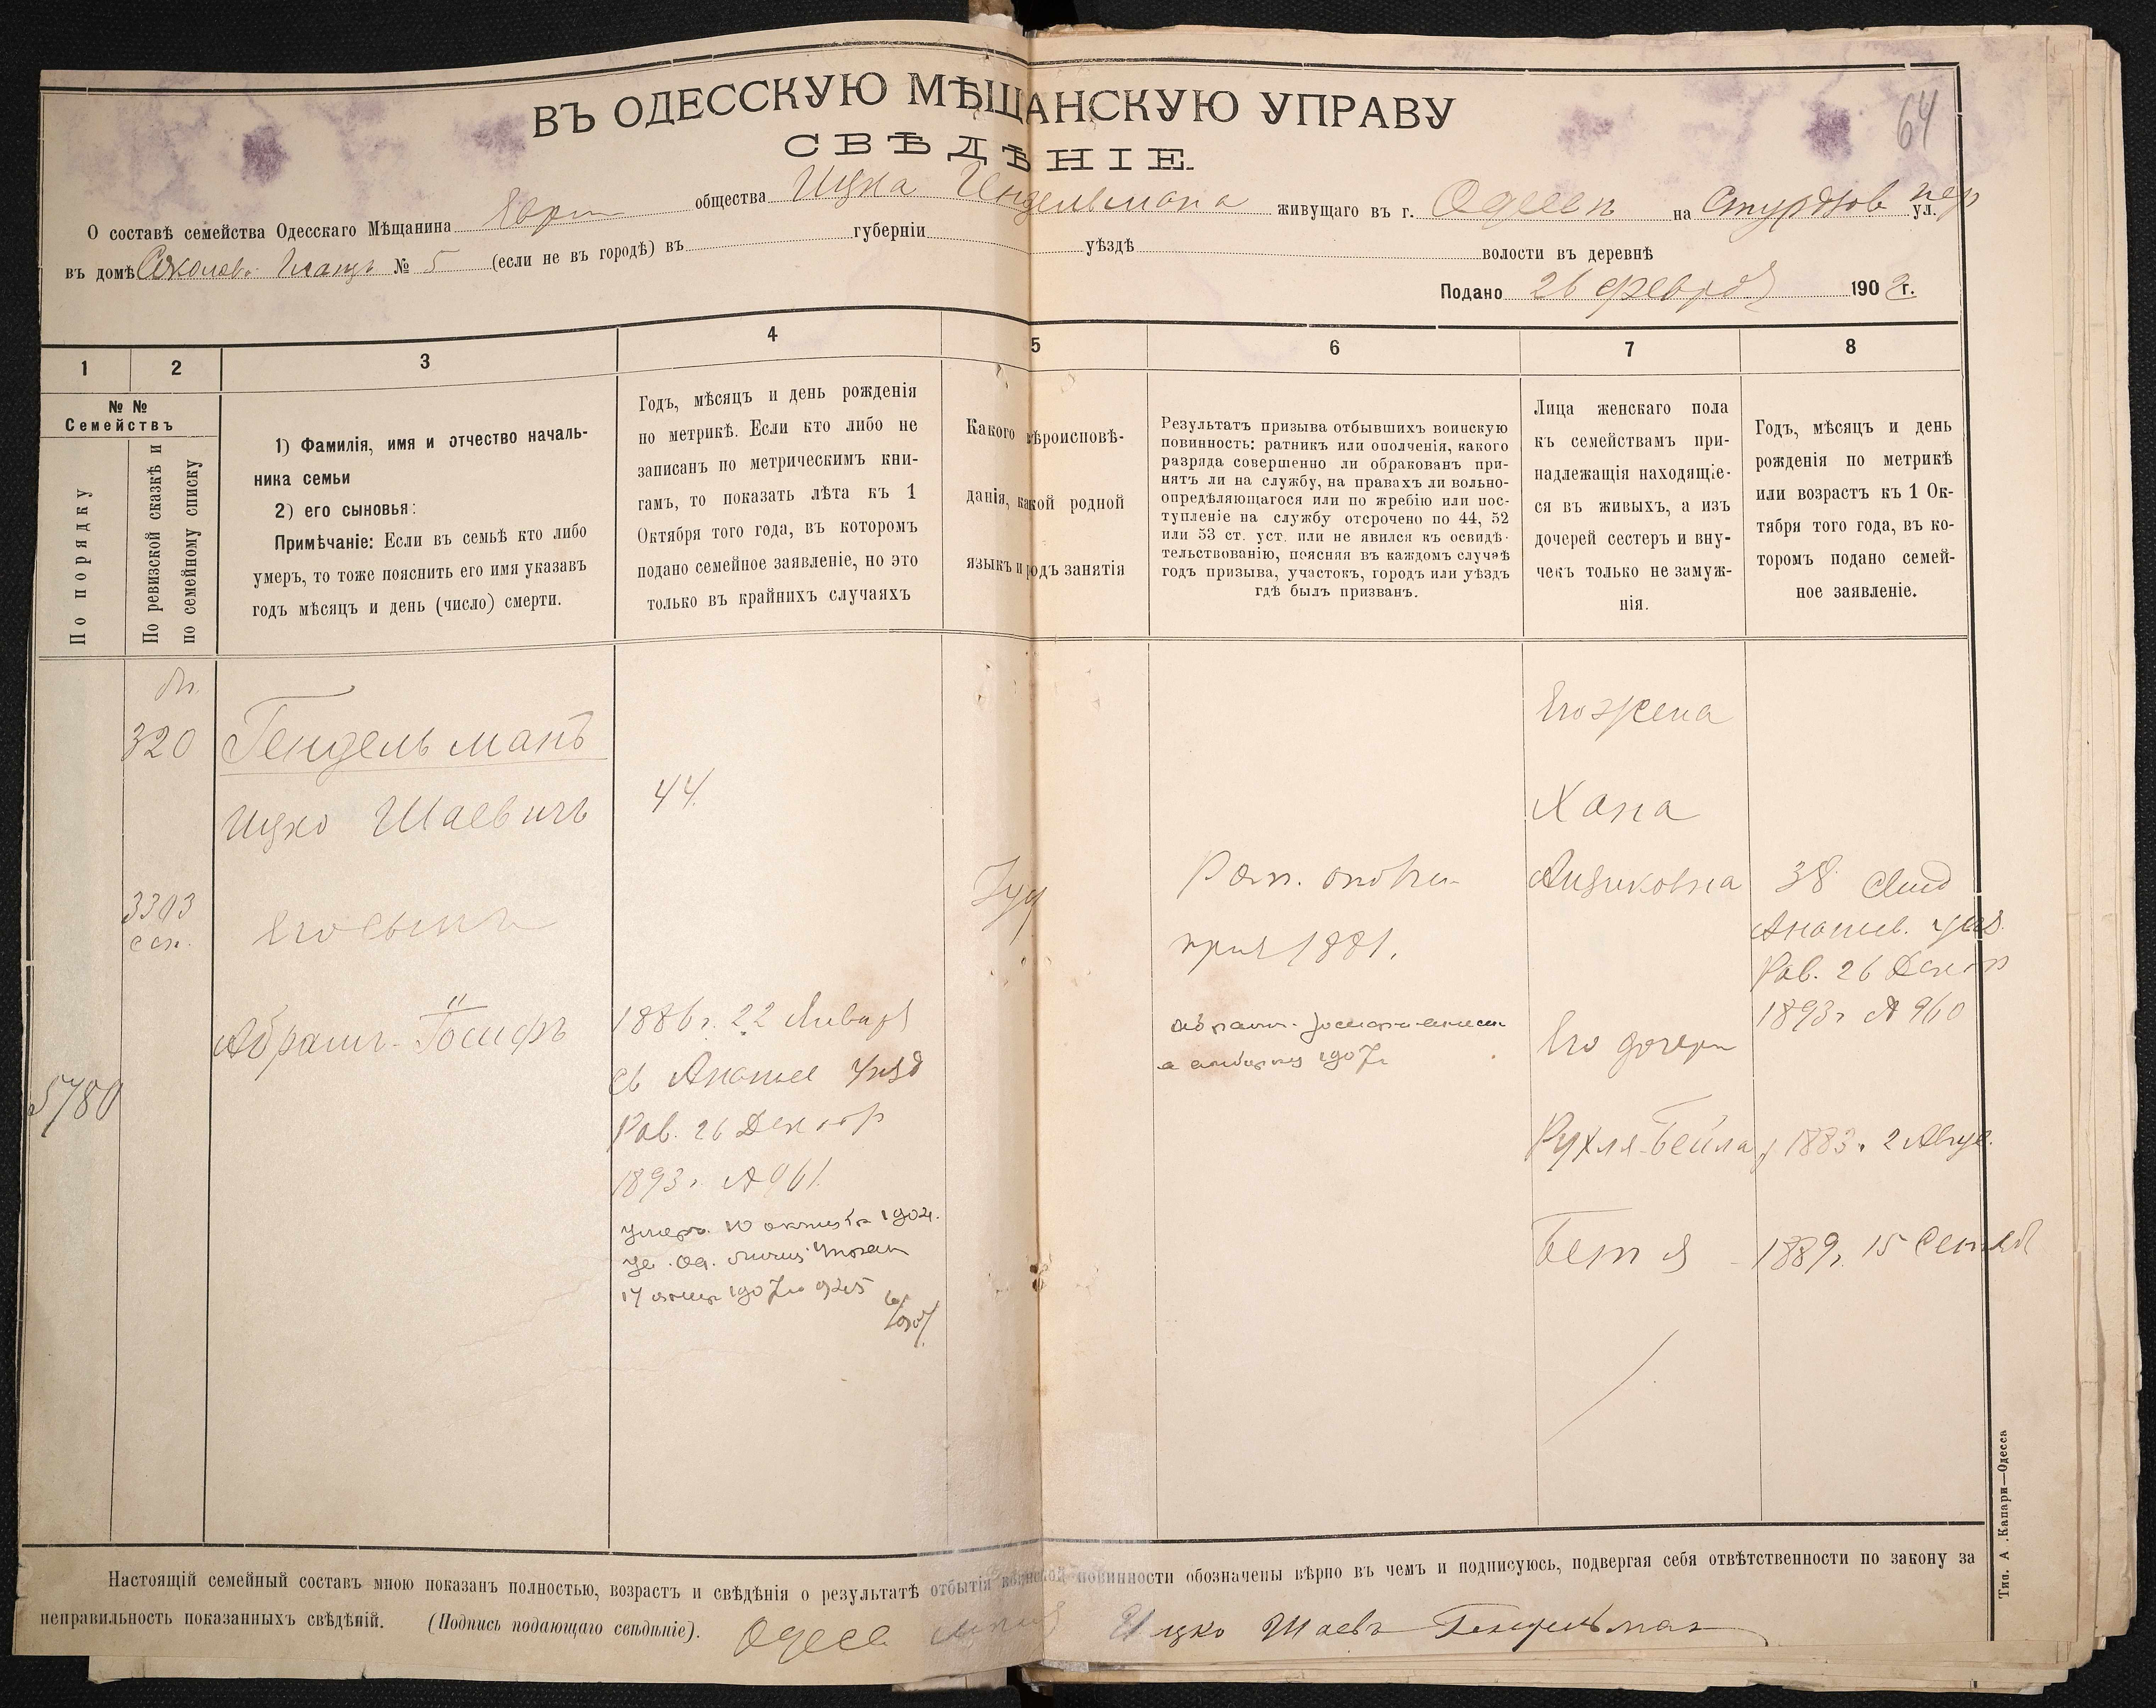 64
ВЪ ОДЕССКУЮ МѢЩАНСКУЮ УПРАВУ
СВѢДѢНІЕ.
О составѣ семейства Одесскаго Мѣщанина общества Ицка Гендельмана живущаго въ г. Одессѣ на Стурдзов пер ул.
въ домѣ № 5 (если не въ городѣ) въ губерніи уѣздѣ волости въ деревнѣ
Подано 26 феврал 1902 г.
1 2 3 4 5 6 7 8
№ №
Семействъ
По порядку
По ревизской сказкѣ и
по семейному списку
1) Фамилія, имя и отчество началь-
ника семьи
2) его сыновья:
Примѣчаніе: Если въ семьѣ кто либо
умеръ, то тоже пояснить его имя указавъ
годъ мѣсяцъ и день (число) смерти.
Годъ, мѣсяцъ и день рожденія
по метрикѣ. Если кто либо не
записанъ по метрическимъ кни-
гамъ, то показать лѣта къ 1
Октября того года, въ которомъ
подано семейное заявленіе, но это
только въ крайнихъ случаяхъ
Какого вѣроисповѣ-
данія, какой родной
языкъ и родъ занятія
Результатъ призыва отбывшихъ воинскую
повинность: ратникъ или ополченія, какого
разряда совершенно ли обракованъ при-
нятъ ли на службу, на правахъ ли вольно-
опредѣляющагося или по жребію или пос-
тупленіе на службу отсрочено по 44, 52
или 53 ст. уст. или не явился къ освидѣ-
тельствованію, поясняя въ каждомъ случаѣ
годъ призыва, участокъ, городъ или уѣздъ
гдѣ былъ призванъ.
Лица женскаго пола
къ семействамъ при-
надлежащія находящіе-
ся въ живыхъ, а изъ
дочерей сестеръ и вну-
чекъ только не замуж-
нія.
Годъ, мѣсяцъ и день
рожденія по метрикѣ
или возрастъ къ 1 Ок-
тября того года, въ ко-
торомъ подано семей-
ное заявленіе.
320
Гендельманъ
Ицко Шаевичъ
44.
3313
Его сынъ
Абрамъ-Іосифъ
5780
1886 г. 22 Январ
Ананьев Уѣзд
Рав. 26 Декабр
1893 г. № 961
Умеръ 10 октяб 1904.
Іуд
Рат. опол
приз 1881.
Его жена
Хана
Айзиковна
38
Ананьев. уѣз.
Рав. 26 Декабр
1893 г № 960
Его дочери
Рухля-Бейла
1883 г. 2 Авгус.
Бетя
1889 г. 15 Сентяб
Настоящій семейный составъ мною показанъ полностью, возрастъ и свѣдѣнія о результатѣ отбытія воинской повинности обозначены вѣрно въ чемъ и подписуюсь, подвергая себя отвѣтственности по закону за
неправильность показанныхъ свѣдѣній. (Подпись подающаго свѣдѣніе). Ицко Шаевъ Гендельман
Тип. А. Капари—Одесса